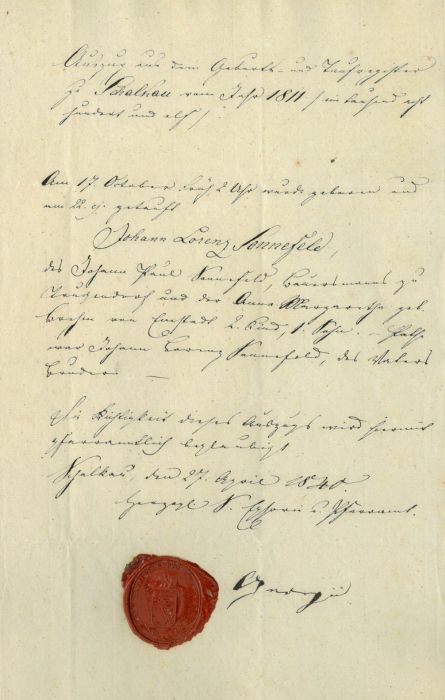 Auszug aus dem Geburts- und Taufregister
zu Schalkau vom Jahr 1811 / ein tausend acht
hundert und elf /.
Am 17. October früh 2 Uhr wurde geboren und
am 22. ej. getauft
Johann Lorenz Sonnefeld,
des Johann Paul Sonnefeld, Bauersmanns zu
und der Anna Margaretha geb.
Brehm von Emstadt 2. Kind, 1. Sohn. – Pathe
war Johann Lorenz Sonnefeld, des Vaters
Bruder. —
Die Richtigkeit dieses Auszugs wird hiermit
pfarramtlich beglaubigt.
Schalkau, den 27. April 1840.
Herzogl. S. Ephorie u. Pfarramt.